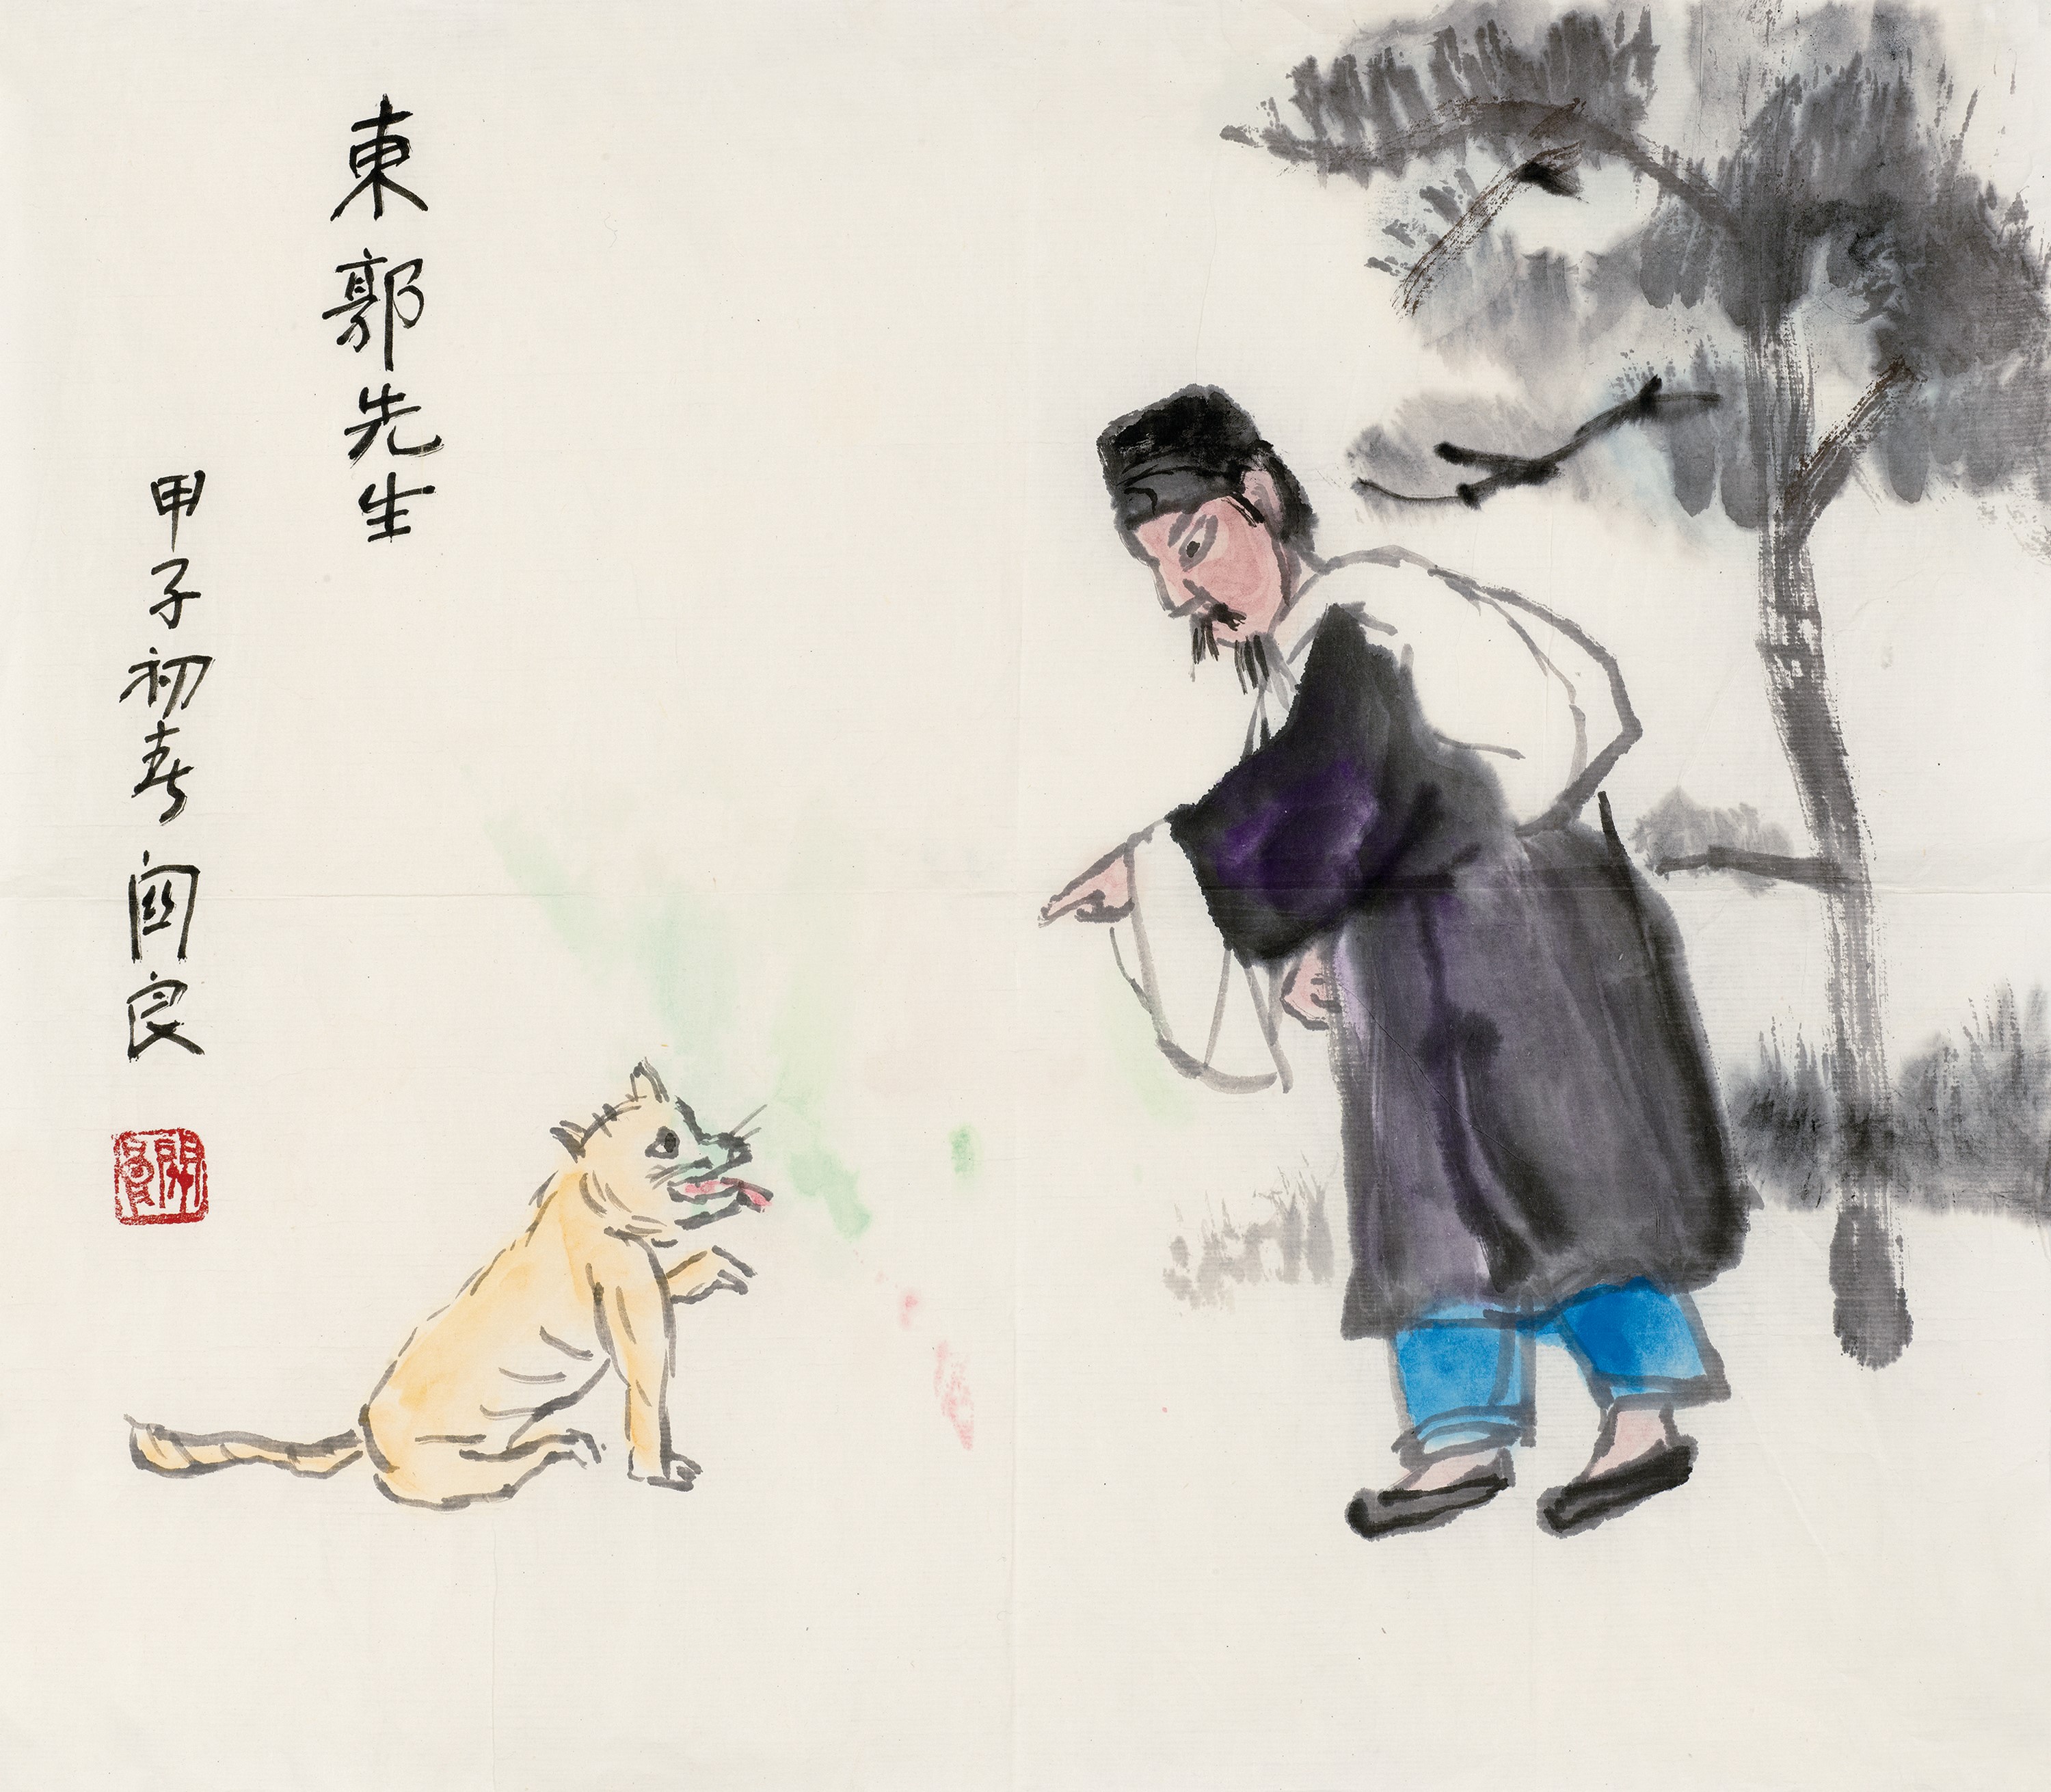 東郭先生
甲子初春 關良
關良